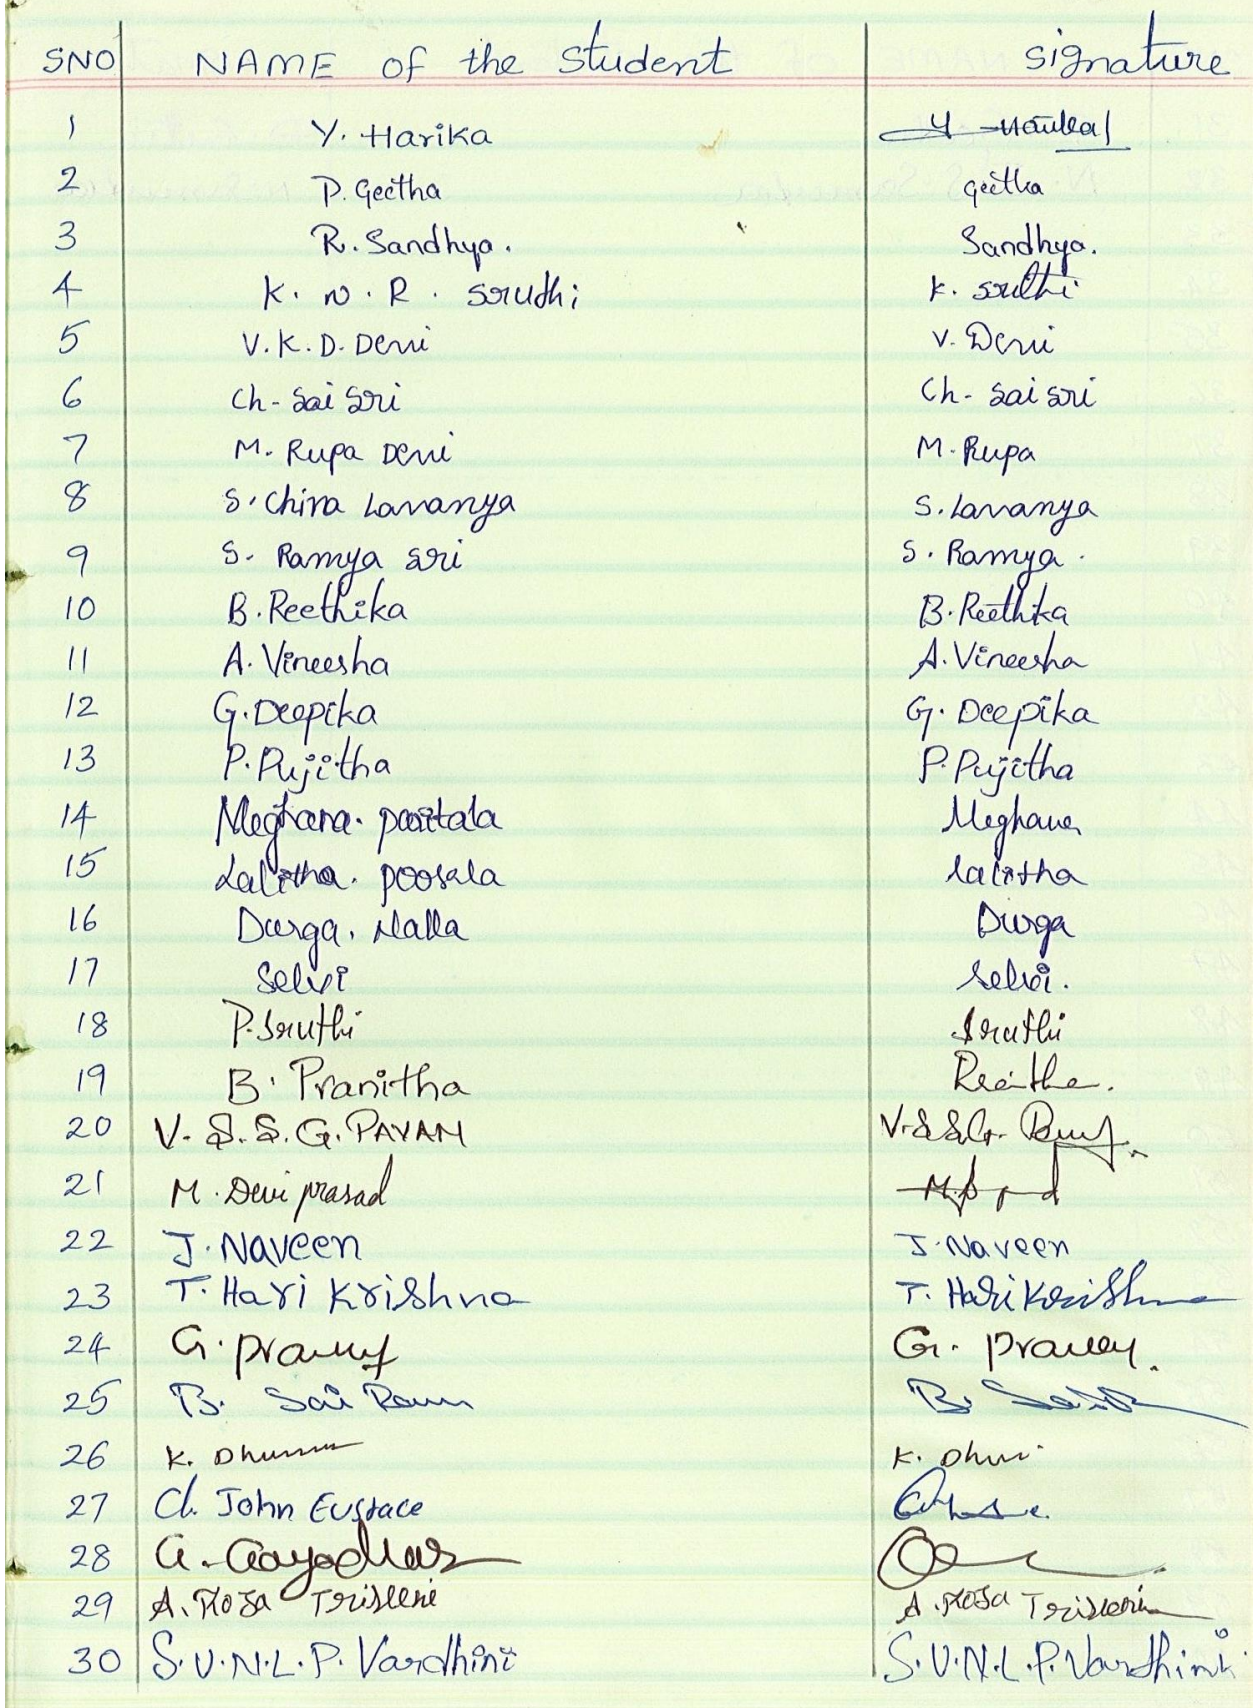 SNO NAME of the student signature
1 Y. Harika Y Harika
2 P. Geetha Geetha
3 R. Sandhya. Sandhya.
4 K. N. R. Sruthi K. Sruthi
5 V.K.D. Devi V. Devi
6 Ch- Sai Sri Ch- Sai Sri
7 M. Rupa Devi M. Rupa
8 S. China Lavanya S. Lavanya
9 S. Ramya Sri S. Ramya.
10 B. Reethika B. Reethika
11 A. Vineesha A. Vineesha
12 G. Deepika G. Deepika
13 P. Pujitha P. Pujitha
14 Meghana. paritala Meghana
15 Lalitha. poosala lalitha
16 Durga. Nalla Durga
17 Selvi Selvi.
18 P. Sruthi Sruthi
19 B. Pranitha
20 V. S. S. G. PAVAN V.S.S.G.
21 M. Devi prasad
22 J. Naveen J. Naveen
23 T. Hari Krishna T. Hari Krishna
24 G. G.
25 B. Sai Ram B.
26 K. K.
27 Ch. John Eustace
28 G.
29 A. Rosa A. Rosa
30 S.V.N.L.P. Vardhini S.V.N.L.P. Vardhini